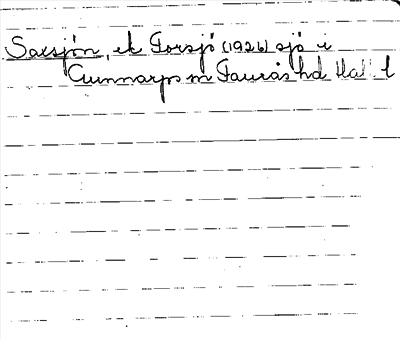 Saesjön, ek Torsjö (1926) sjö i
Gunnarps sn Faurås hd Hall l